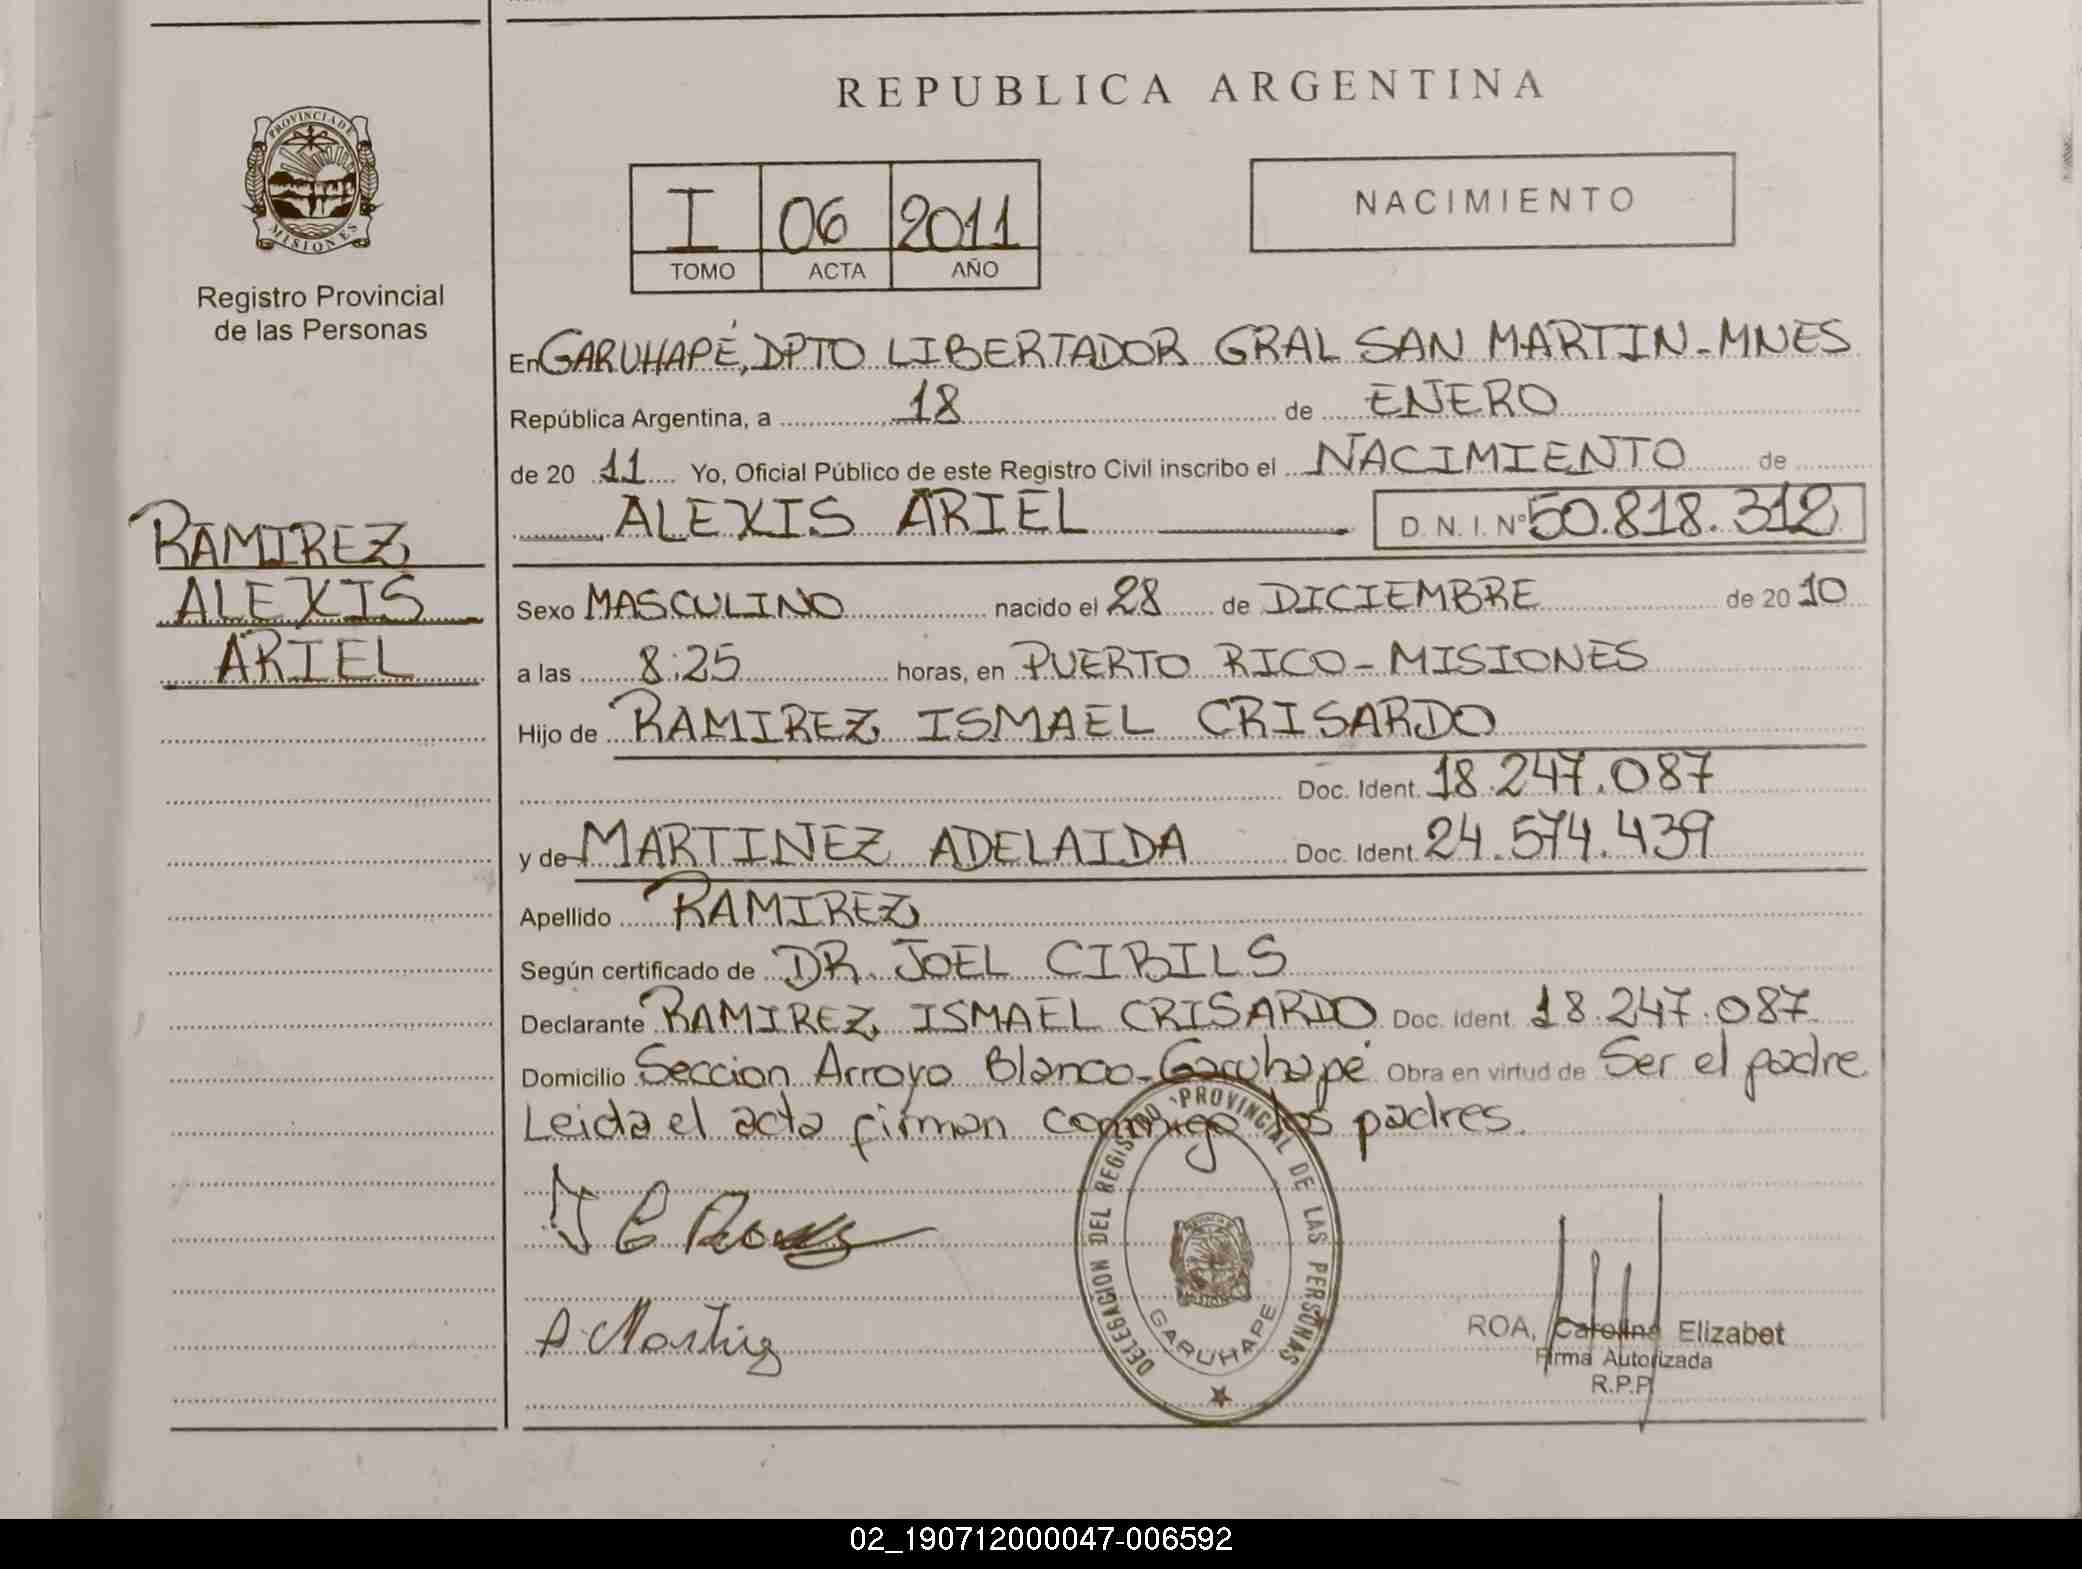 REPUBLICA ARGENTINA
PROVINCIA DE MISIONES
Registro Provincial
de las Personas
I 06 2011
TOMO ACTA AÑO
NACIMIENTO
En GARUHAPÉ, DPTO LIBERTADOR GRAL SAN MARTIN-MNES
República Argentina, a 18 de ENERO
de 20 11 Yo, Oficial Público de este Registro Civil inscribo el NACIMIENTO de
ALEXIS ARIEL D. N. I. Nº 50.818.312
RAMIREZ
ALEXIS
ARIEL
Sexo MASCULINO nacido el 28 de DICIEMBRE de 20 10
a las 8:25 horas, en PUERTO RICO-MISIONES
Hijo de RAMIREZ ISMAEL CRISARDO
Doc. Ident. 18.247.087
y de MARTINEZ ADELAIDA Doc. Ident. 24.574.439
Apellido RAMIREZ
Según certificado de DR. JOEL CIBILS
Declarante RAMIREZ ISMAEL CRISARDO Doc. Ident. 18.247.087
Domicilio Seccion Arroyo Blanco-Garuhapé Obra en virtud de Ser el padre
Leida el acta firman conmigo los padres.
DELEGACION DEL REGISTRO PROVINCIAL DE LAS PERSONAS
GARUHAPE
ROA, Carolina Elizabet
Firma Autorizada
R.P.P.
02_190712000047-006592